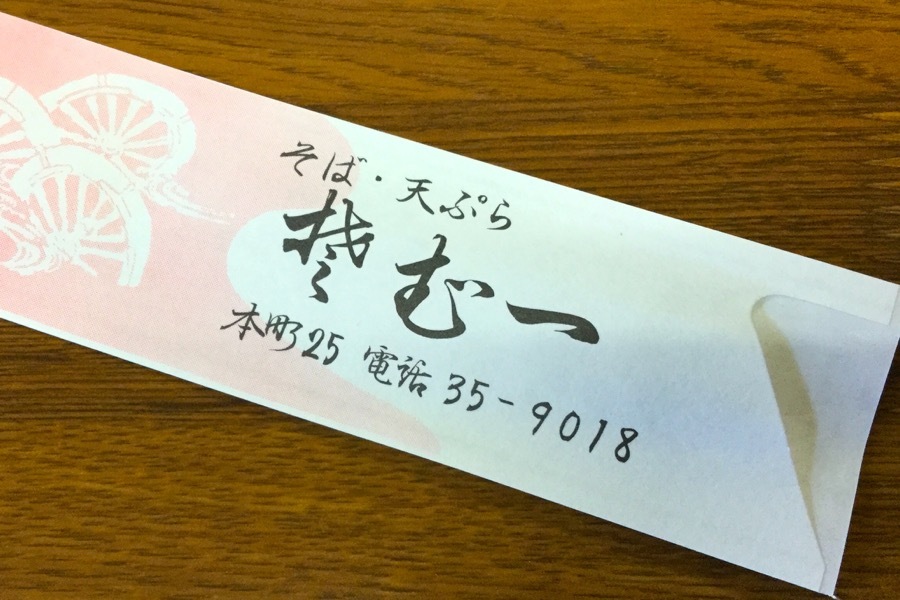 そば・天ぷら
む一
本町25 電話 35-9018